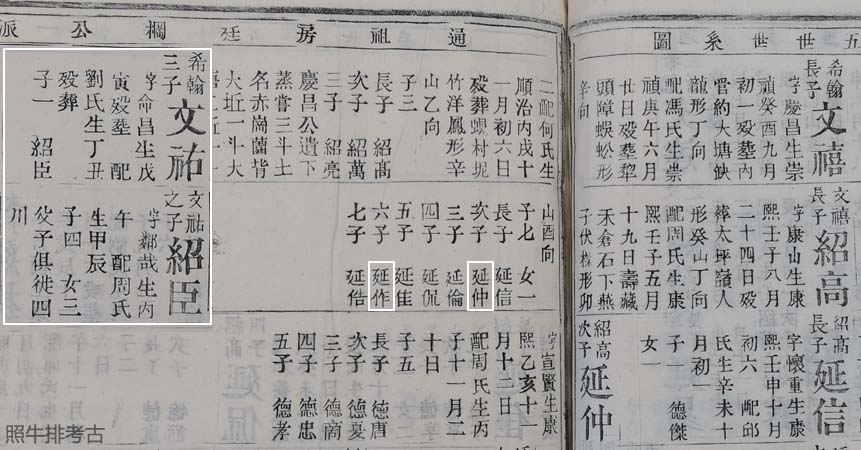 五世世系圖
希翰長子 文禧
字慶昌生崇
禎癸酉九月
初一歿塟內
管約大塘缺
龍形丁向
配馮氏生崇
禎庚午六月
廿日歿塟犂
頭障蜈蚣形
辛向
文禧長子 紹高
字康山生康
熙壬子八月
二十四日歿
葬太坪嶺人
形癸山丁向
配周氏生康
熙壬子五月
十九日壽藏
禾倉石下燕
子伏樑形卯
紹高長子 延信
字懷重生康
熙壬申十月
初六 配邱
氏生辛未十
月初一
子一 德傑
女一
紹高次子 延仲
通祖房廷棡公派
二配何氏生
順治丙戌十
一月初六日
歿葬螺村坭
竹洋鳳形辛
山乙向
子三
長子 紹高
次子 紹萬
三子 紹亮
慶昌公遺下
蒸嘗三斗土
名赤崗背
大坵一斗大
希翰三子 文祐
字命昌生戊
寅歿塟 配
劉氏生丁丑
歿葬
子一 紹臣
山酉向
子七 女一
長子 延信
次子 延仲
三子 延倫
四子 延侃
五子 延佳
六子 延作
七子 延俈
文祐之子 紹臣
字鄰哉生丙
午 配周氏
生甲辰
子四 女三
父子俱徙四
川
字宣賢生康
熙乙亥十一
月十二日
配周氏生丙
子十一月二
十日
子五
長子 德唐
次子 德夏
三子 德南
四子 德忠
五子 德孝
照牛排考古